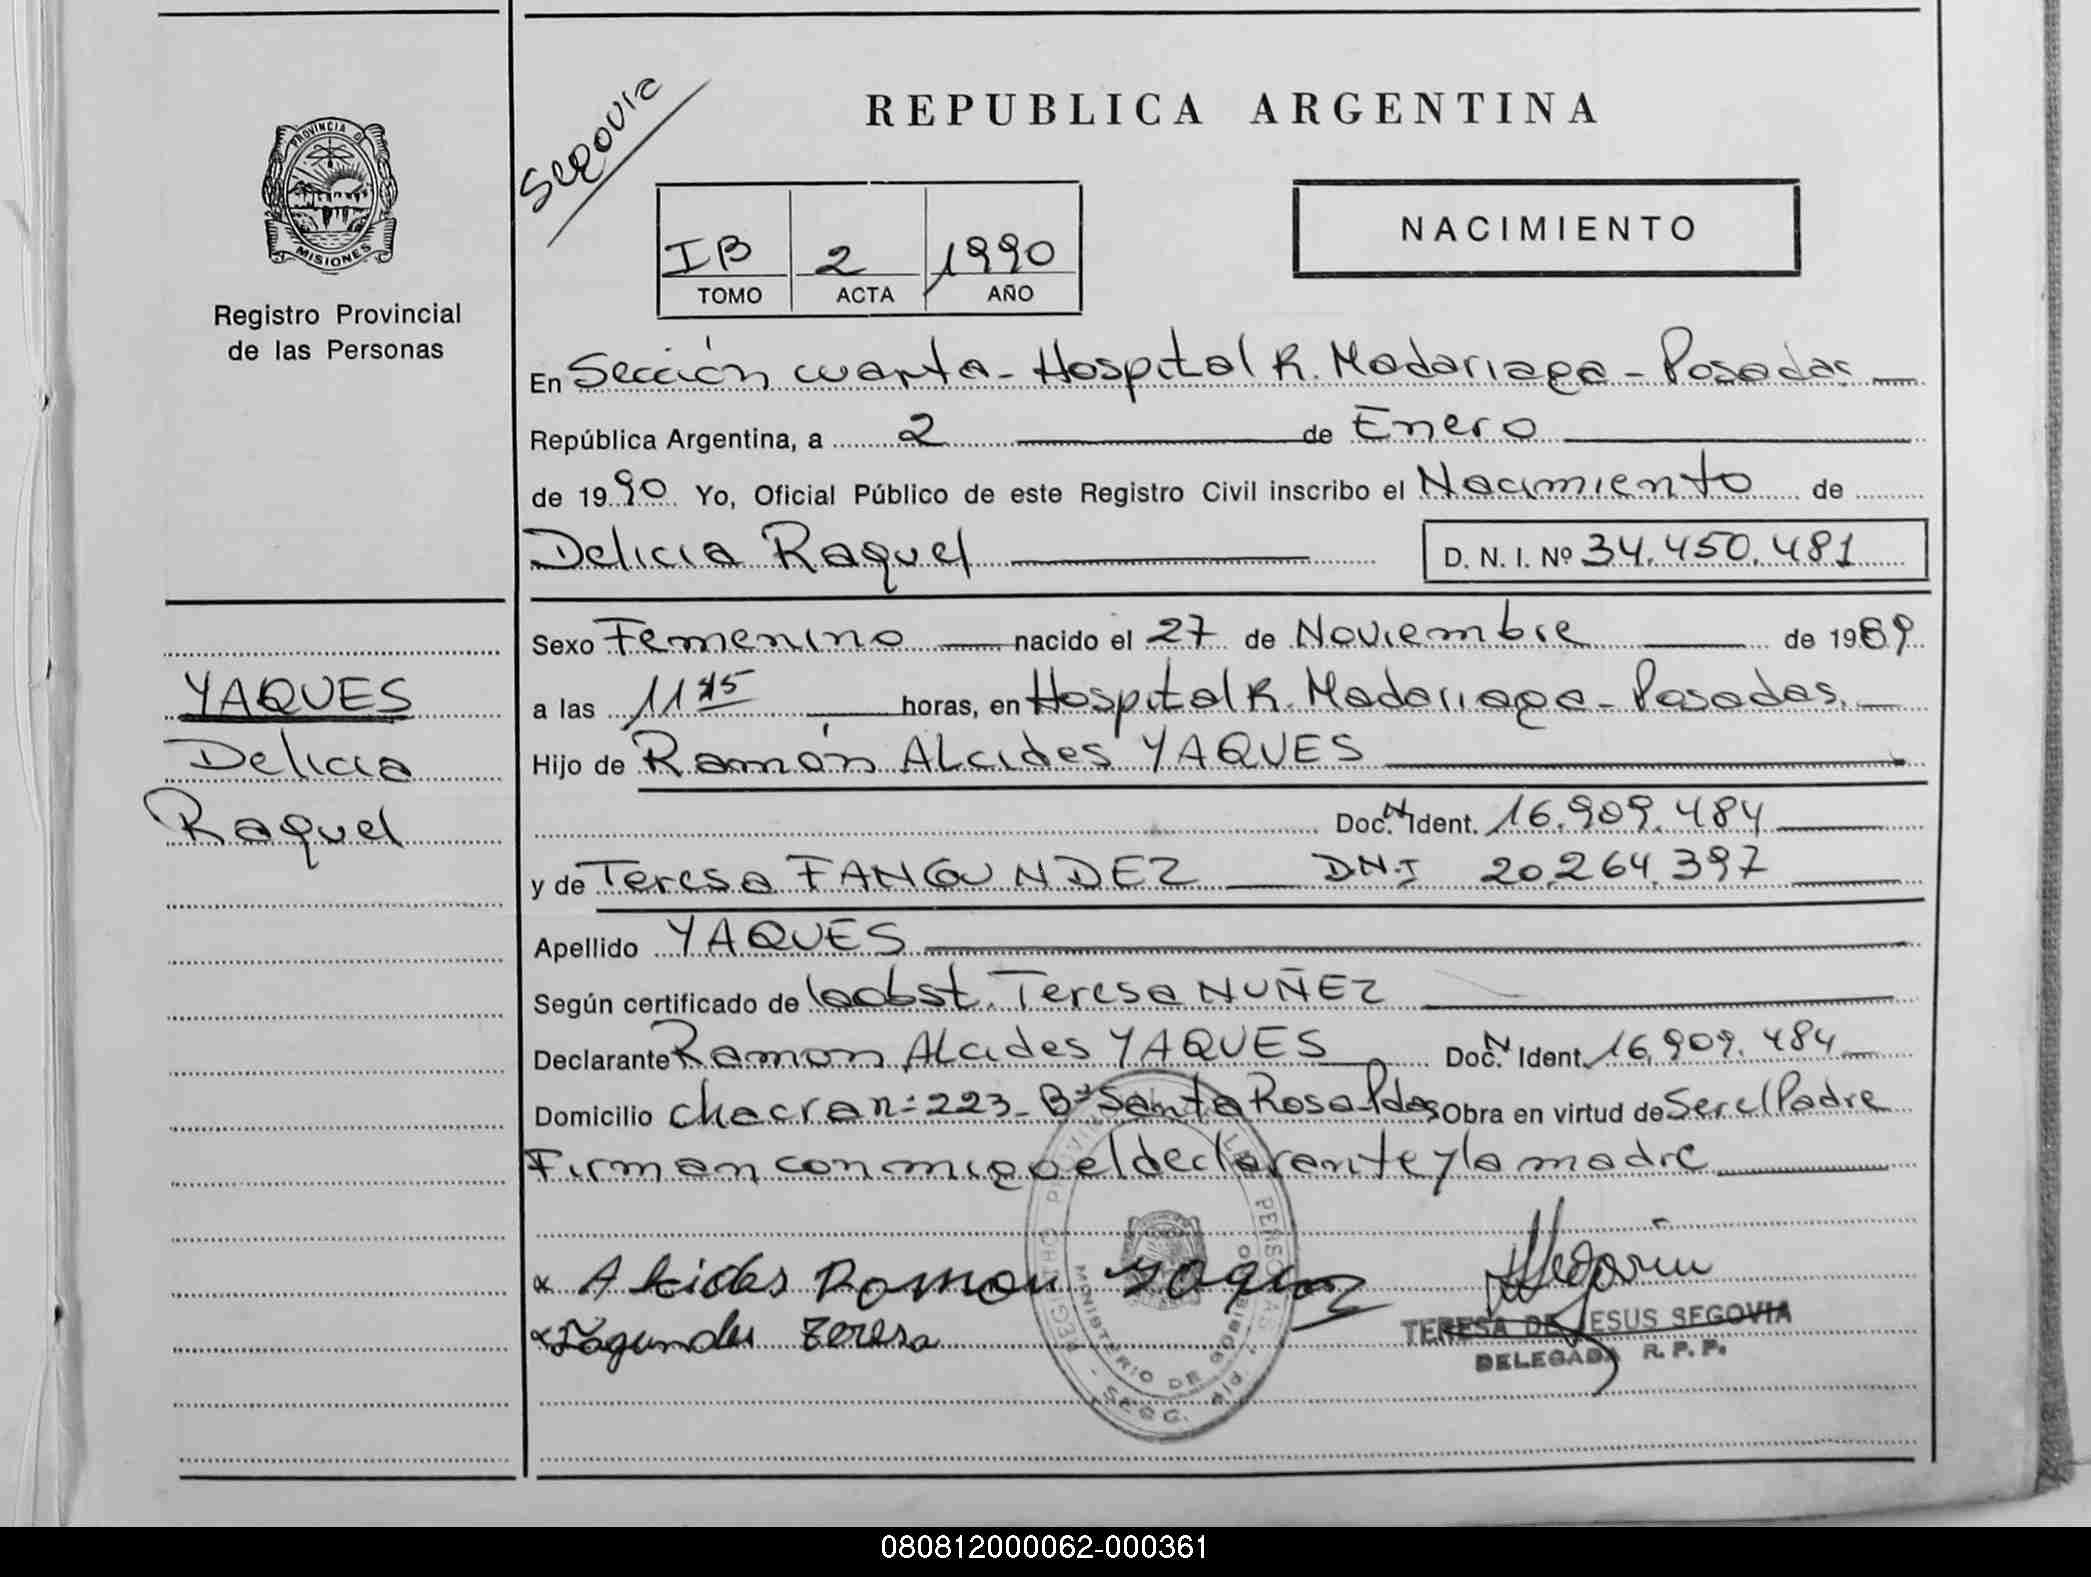 Segovia
REPUBLICA ARGENTINA
PROVINCIA DE
MISIONES
Registro Provincial
de las Personas
NACIMIENTO
IB 2 1990
TOMO ACTA AÑO
En Sección cuarta - Hospital R. Madariaga - Posadas
República Argentina, a 2 de Enero
de 1990 Yo, Oficial Público de este Registro Civil inscribo el Nacimiento de
Delicia Raquel D. N. I. Nº 34.450.481
Sexo Femenino nacido el 27 de Noviembre de 1989
YAQUES
a las 11 45 horas, en Hospital R. Madariaga - Posadas.
Delicia
Hijo de Ramón ALcides YAQUES
Raquel
Doc. N Ident. 16.909.484
y de Teresa FANGUNDEZ D.N.I 20.264.397
Apellido YAQUES
Según certificado de la obst. Teresa NUÑEZ
Declarante Ramon ALcides YAQUES Doc. N Ident. 16.909.484
Domicilio chacra n: 223 - Bº Santa Rosa - Pdas Obra en virtud de Ser el Padre
Firman conmigo el declarante y la madre
REGISTRO PROVINCIAL DE LAS PERSONAS
MINISTERIO DE GOBIERNO
Alcides Ramon Yaques
Fagundes Teresa
TERESA DE JESUS SEGOVIA
DELEGADA R. P. P.
080812000062-000361